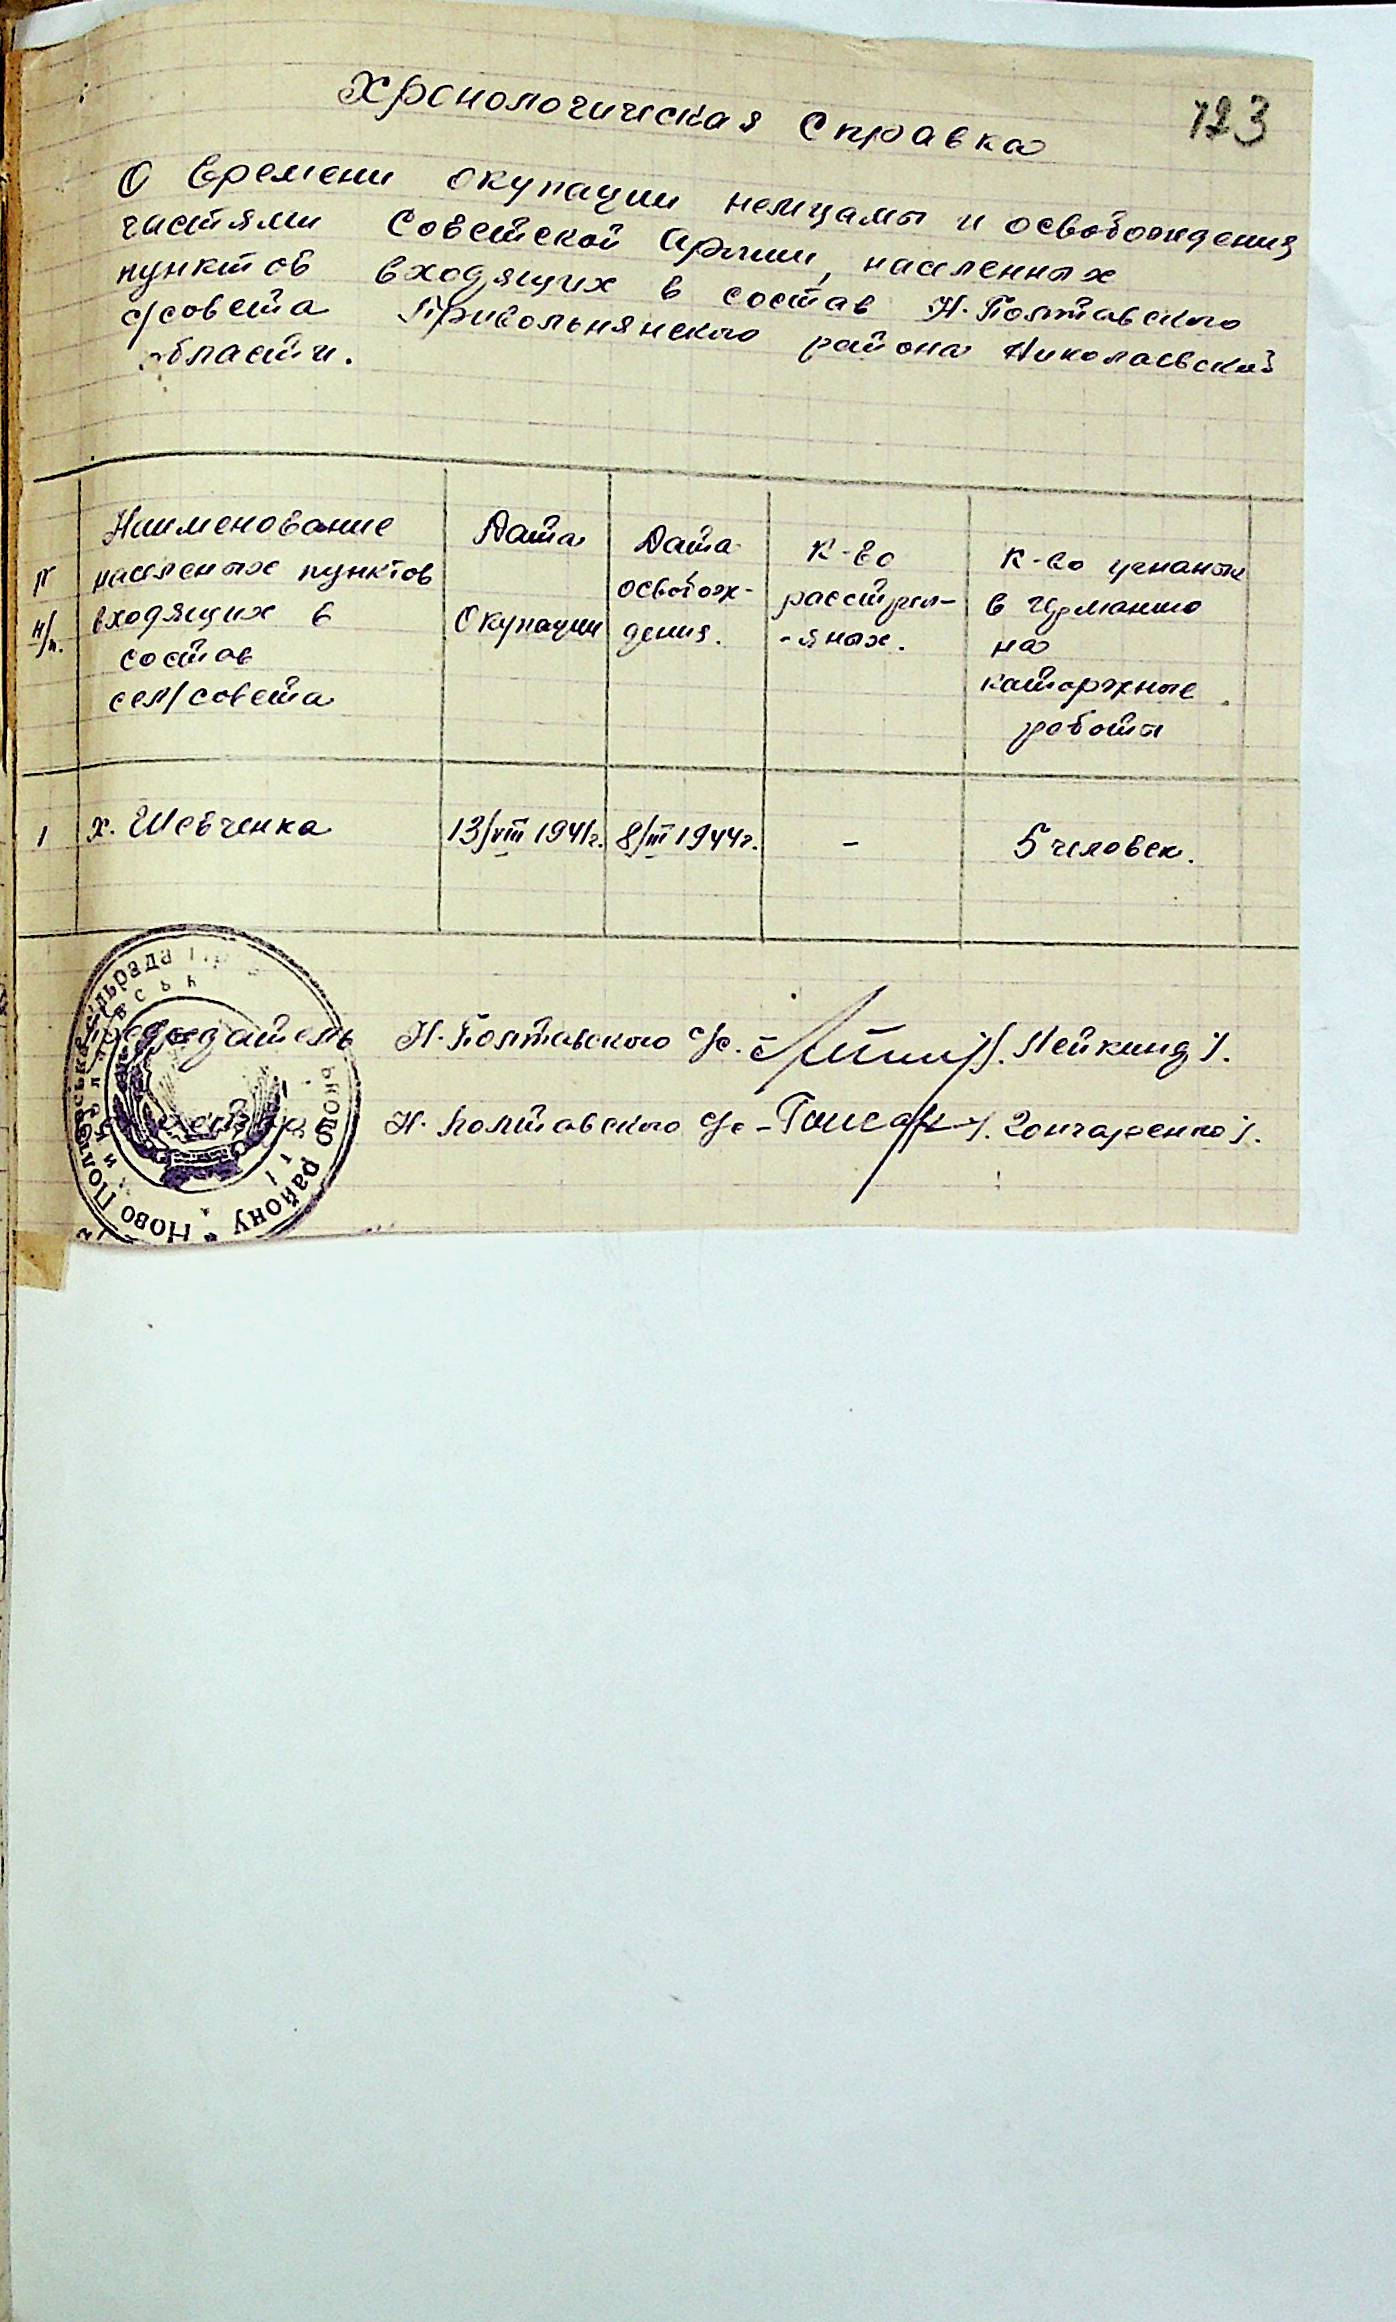 123
Хронологическая справка
О времени окупации немцамы и освобождения
частями Советской Армии, населенных
пунктов входящих в состав Н. Полтавского
с/совета Привольнянского района Николаевской
области.
N
н/п.
Наименование
населеных пунктов
входящих в
состав
сел/совета
Дата
Окупации
Дата
освобож-
дения.
К-во
расстрел-
-яных.
К-во угнаных
в Германию
на
каторжные
работы
1
х. Шевченка
13/VIII 1941г.
8/III 1944г.
-
5 человек.
Председатель Н. Полтавского с/с. /. Мейкинд /.
Н. Полтавского с/с - /. Гончаренко /.
Ново Полтавська сільрада
ького району *